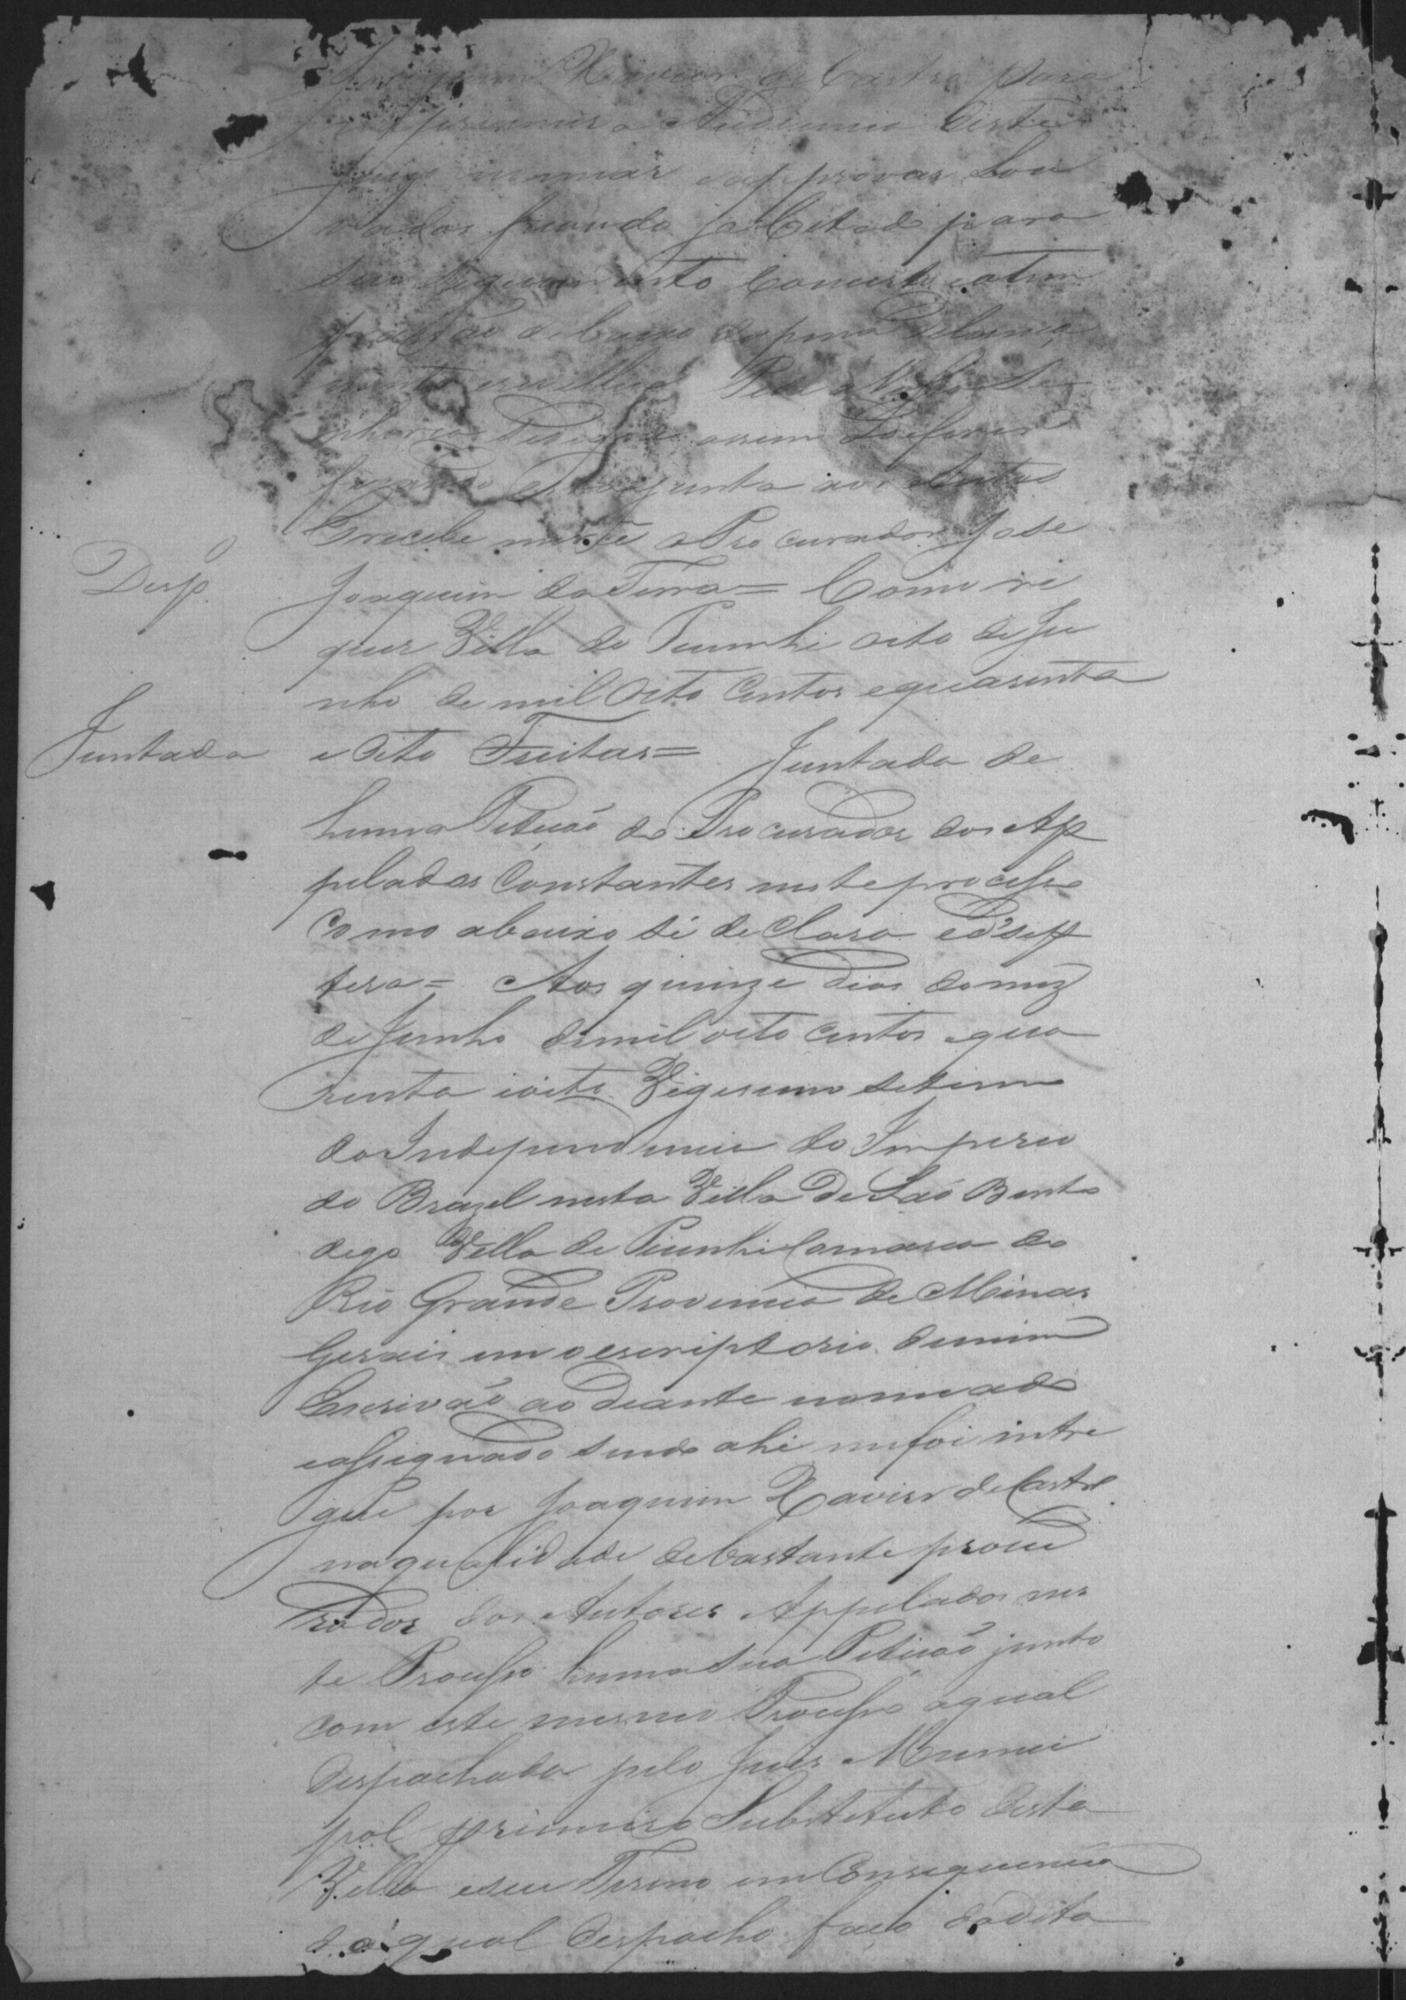 Joaquim Xavier de Castro para
na primeira Audiencia deste
Juizo nomiar e approvar Lou
vados ficando ja Citado para
seus
debaixo da pena
Pede
assim Defferir
junto aos Autos
E recebe mercê o Procurador Jose
Desp.º
Joaquim da Terra = Como re
quer Villa de Piumhi oito de Ju
nho de mil oito centos e quarenta
Juntada
e oito Freitas = Juntada de
huma Petição do Procurador dos Ap
pelados Constantes neste processo
como abaixo se declara
= Aos quinze dias do mez
de Junho de mil oito centos e qua
renta e oito Vigesimo setimo
da Independencia do Imperio
do Brazil nesta Villa de São Bento
digo Villa de Piumhi Comarca do
Rio Grande Provincia de Minas
Gerais em o escriptorio de mim
Escrivão ao diante nomeado
e assignado sendo ahi me foi intre
gue por Joaquim Xavier de Castro
na qualidade de bastante procu
rador dos Autores Appelados nes
te Processo huma sua Petição junto
com este mesmo Processo a qual
despachada pelo Juiz Munici
pal primeiro Substituto desta
Villa e seu Termo em Consequencia
da qual despacho faço da dita